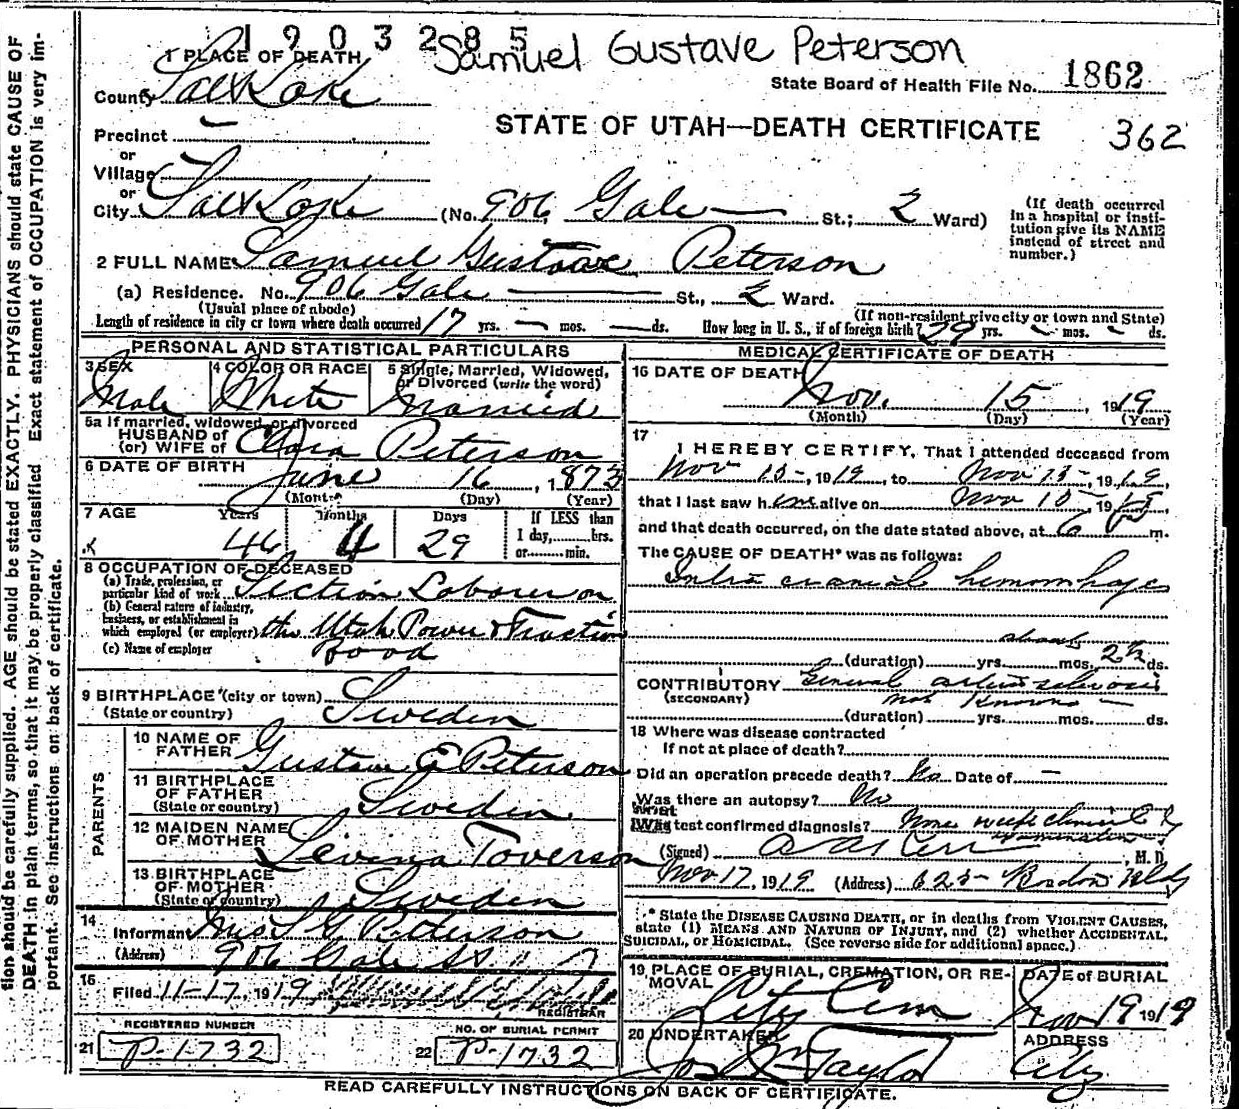 1903285
Samuel Gustave Peterson
1 PLACE OF DEATH
State Board of Health File No. 1862
County Salt Lake
STATE OF UTAH—DEATH CERTIFICATE
362
Precinct
or
Village
or
City Salt Lake (No. 906 Gale St.; 2 Ward)
(If death occurred in a hospital or insti-
tution give its NAME instead of street and number.)
2 FULL NAME Samuel Gustave Peterson
(a) Residence. No. 906 Gale St., 2 Ward.
(Usual place of abode)
(If non-resident give city or town and State)
Length of residence in city or town where death occurred 17 yrs. — mos. — ds. How long in U. S., if of foreign birth? 29 yrs. — mos. — ds.
PERSONAL AND STATISTICAL PARTICULARS
3 SEX
Male
4 COLOR OR RACE
White
5 Single, Married, Widowed, or Divorced (write the word)
Married
5a If married, widowed, or divorced
HUSBAND of
(or) WIFE of Clara Peterson
6 DATE OF BIRTH June 16, 1873
(Month) (Day) (Year)
7 AGE Years Months Days
46 4 29
If LESS than
1 day, hrs.
or min.
8 OCCUPATION OF DECEASED
(a) Trade, profession, or
particular kind of work Section Laborer on
(b) General nature of industry,
business, or establishment in
which employed (or employer) the Utah Power & Traction
(c) Name of employer Road
9 BIRTHPLACE (city or town)
(State or country) Sweden
PARENTS
10 NAME OF FATHER Gustave E Peterson
11 BIRTHPLACE OF FATHER
(State or country) Sweden
12 MAIDEN NAME OF MOTHER Levina Toverson
13 BIRTHPLACE OF MOTHER
(State or country) Sweden
14
Informant Mrs S G Peterson
(Address) 906 Gale St
15
Filed 11-17, 1919
REGISTRAR
REGISTERED NUMBER
21 P-1732
NO. OF BURIAL PERMIT
22 P-1732
MEDICAL CERTIFICATE OF DEATH
16 DATE OF DEATH
Nov. 15, 1919
(Month) (Day) (Year)
17
I HEREBY CERTIFY, That I attended deceased from
Nov 13, 1919, to Nov 15, 1919,
that I last saw him alive on Nov 15, 1919
and that death occurred, on the date stated above, at 6 P m.
The CAUSE OF DEATH* was as follows:
Intra cranial hemorrhages
about
(duration) yrs. mos. 2½ ds.
CONTRIBUTORY General arterio sclerosis
(SECONDARY) not known
(duration) yrs. mos. ds.
18 Where was disease contracted
If not at place of death?
Did an operation precede death? No Date of —
Was there an autopsy? No
What test confirmed diagnosis? None
(Signed) , M. D.
Nov 17, 1919 (Address) 625 Bldg
* State the DISEASE CAUSING DEATH, or in deaths from VIOLENT CAUSES,
state (1) MEANS AND NATURE OF INJURY, and (2) whether ACCIDENTAL,
SUICIDAL, OR HOMICIDAL. (See reverse side for additional space.)
19 PLACE OF BURIAL, CREMATION, OR RE-
MOVAL
City Cem
DATE of BURIAL
Nov 19 1919
20 UNDERTAKER
Jos Wm Taylor
ADDRESS
City
READ CAREFULLY INSTRUCTIONS ON BACK OF CERTIFICATE.
tion should be carefully supplied. AGE should be stated EXACTLY. PHYSICIANS should state CAUSE OF
DEATH in plain terms, so that it may be properly classified. Exact statement of OCCUPATION is very im-
portant. See instructions on back of certificate.